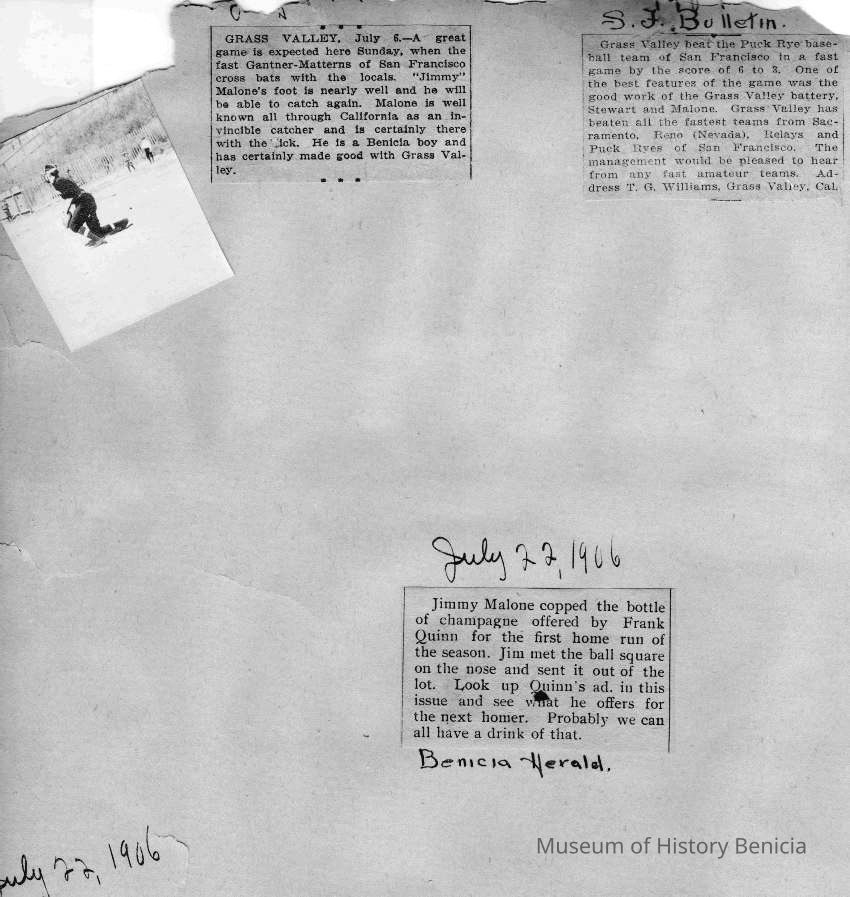 GRASS VALLEY, July 6.—A great
game is expected here Sunday, when the
fast Gantner-Matterns of San Francisco
cross bats with the locals. "Jimmy"
Malone's foot is nearly well and he will
be able to catch again. Malone is well
known all through California as an in-
vincible catcher and is certainly there
with the ick. He is a Benicia boy and
has certainly made good with Grass Val-
ley.
S. F. Bulletin.
Grass Valley beat the Puck Rye base-
ball team of San Francisco in a fast
game by the score of 6 to 3. One of
the best features of the game was the
good work of the Grass Valley battery,
Stewart and Malone. Grass Valley has
beaten all the fastest teams from Sac-
ramento, Reno (Nevada), Relays and
Puck Ryes of San Francisco. The
management would be pleased to hear
from any fast amateur teams. Ad-
dress T. G. Williams, Grass Valley, Cal.
July 22, 1906
Jimmy Malone copped the bottle
of champagne offered by Frank
Quinn for the first home run of
the season. Jim met the ball square
on the nose and sent it out of the
lot. Look up Quinn's ad. in this
issue and see what he offers for
the next homer. Probably we can
all have a drink of that.
Benicia Herald.
Museum of History Benicia
July 22, 1906